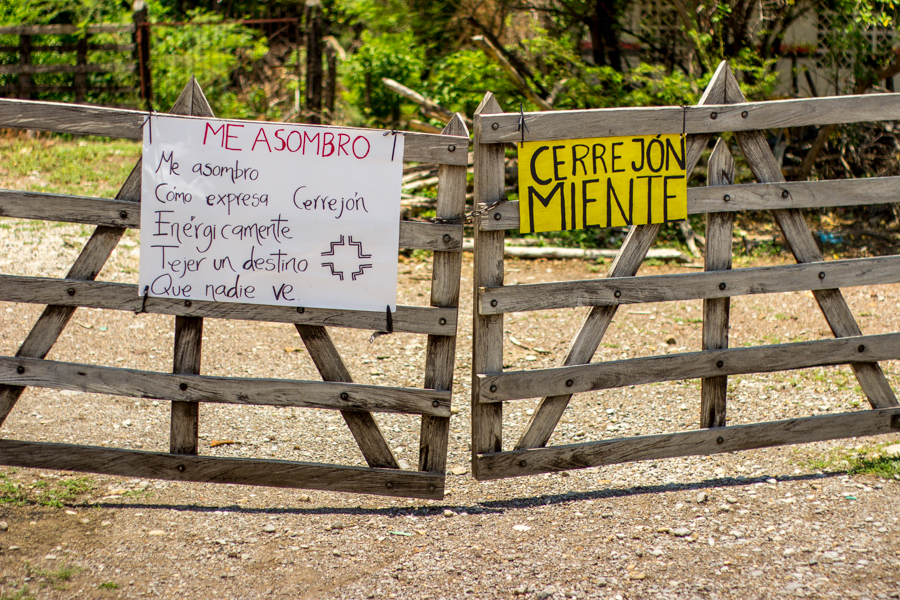 ME ASOMBRO
Me asombro
Cómo expresa Cerrejón
Enérgicamente
Tejer un destino
Que nadie ve.
CERREJÓN
MIENTE